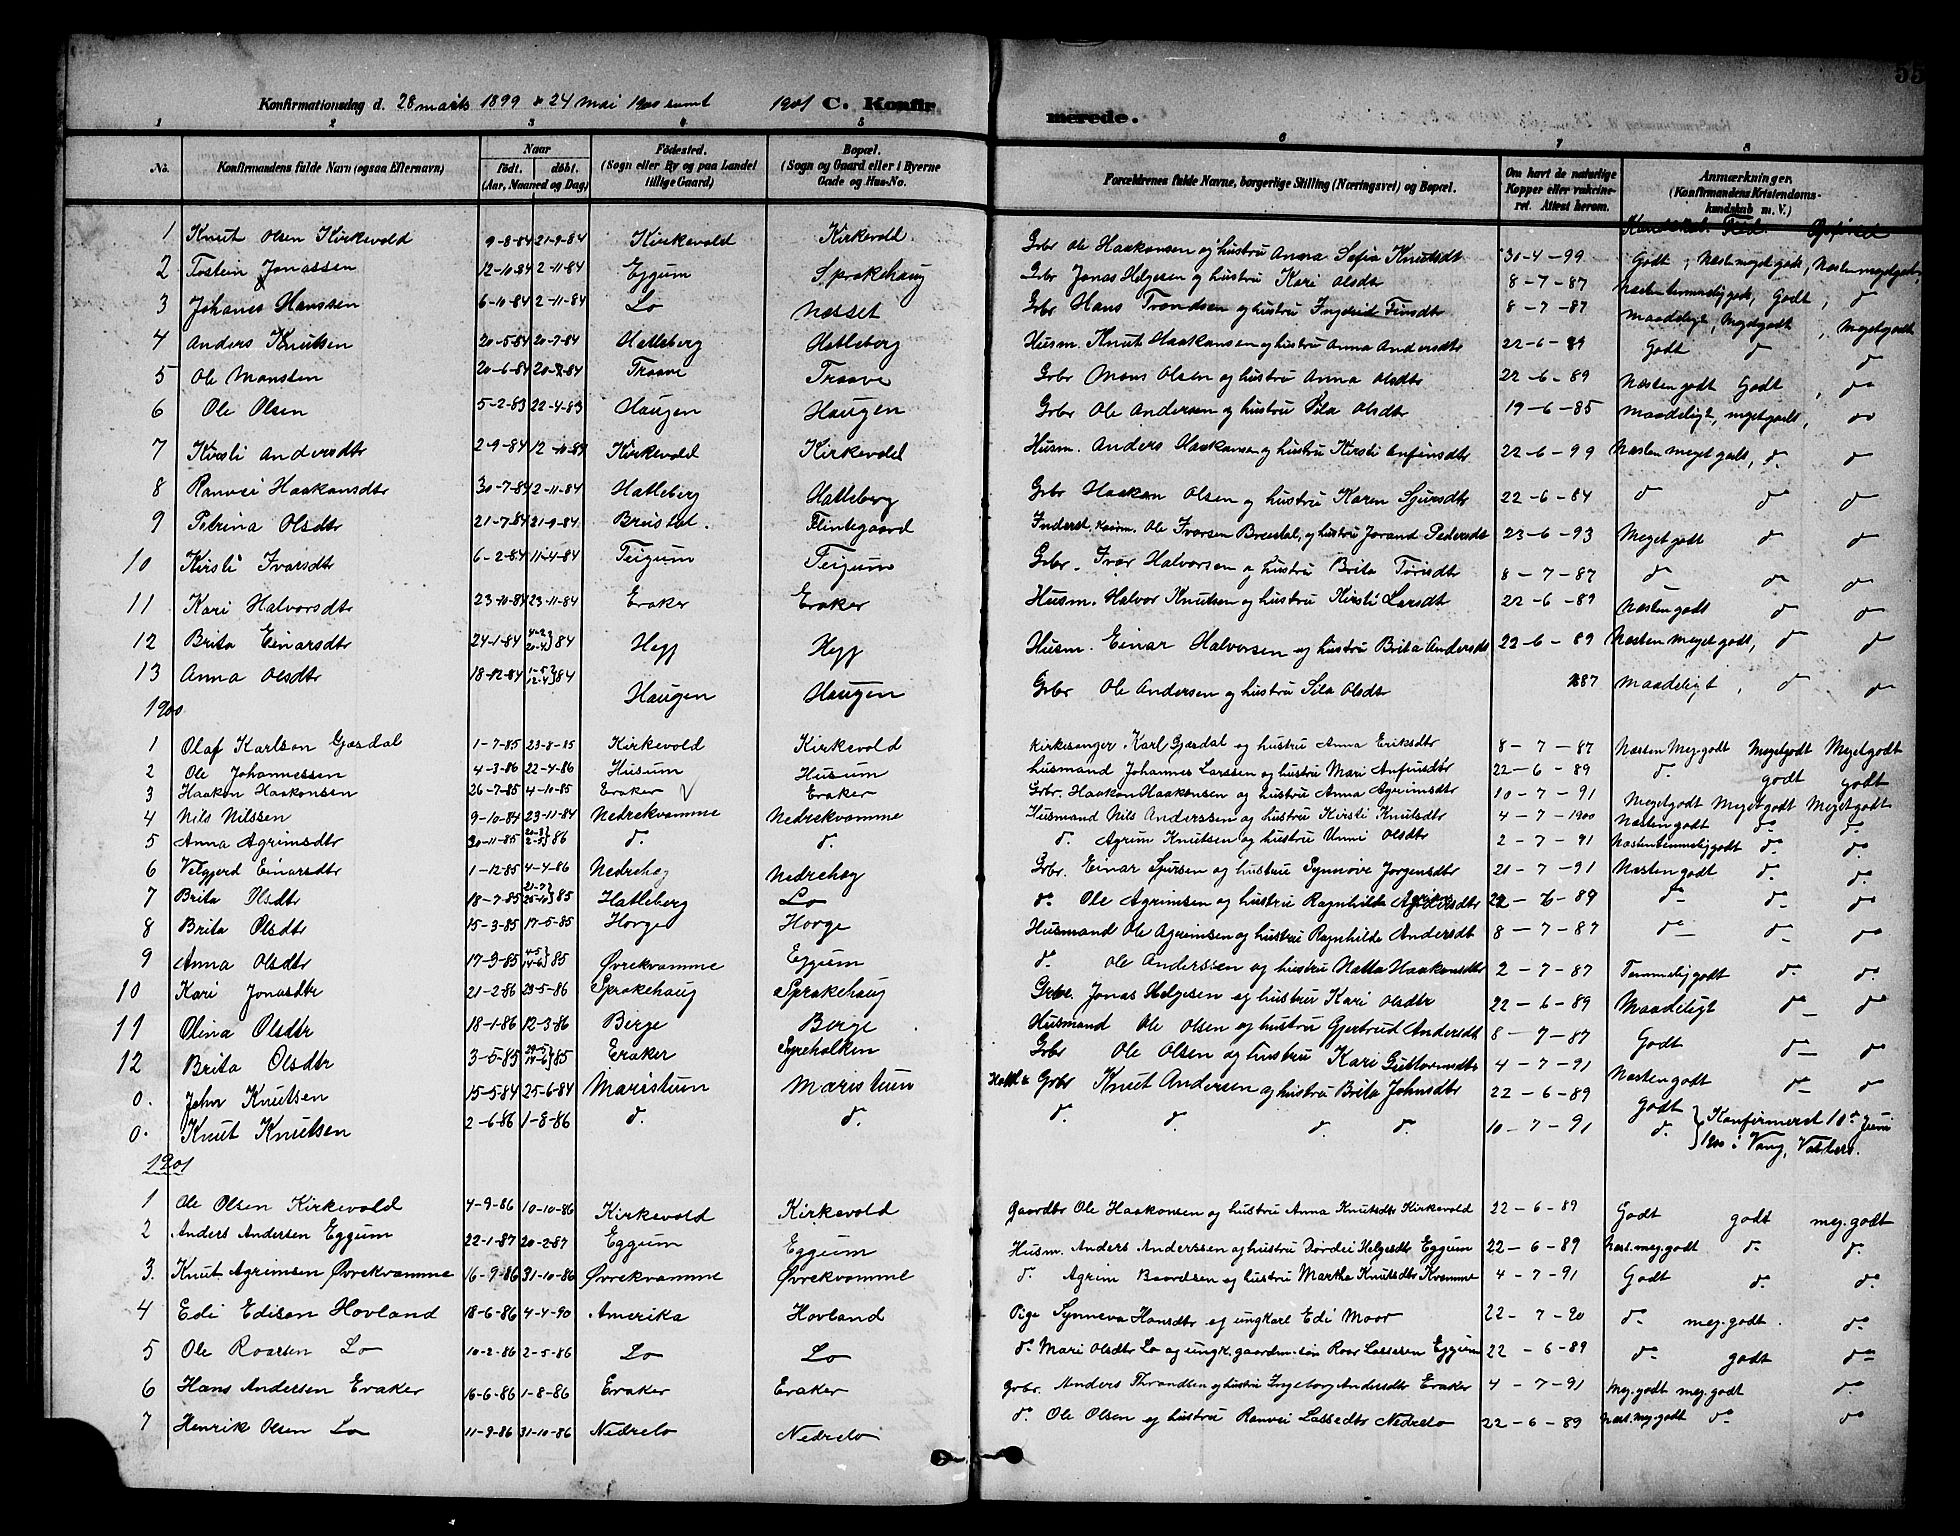 55
Konfirmationsdag d. 28 marts 1899 & 24 mai 1900 samt 1901 C. Konfirmerede.
1 2 3 4 5 6 7 8
No. Konfirmandens fulde Navn (ogsaa Efternavn) Naar født. døbt. (Aar, Maaned og Dag) Fødested. (Sogn eller By og paa Landet tillige Gaard) Bopæl. (Sogn og Gaard eller i Byerne Gade og Hus-No. Forældrenes fulde Navne, borgerlige Stilling (Næringsvei) og Bopæl. Om havt de naturlige Kopper eller vakcineret. Attest herom. Anmærkninger. (Konfirmandens Kristendomskundskab m. V.)
Kundskab. Flid. Opførsel
1 Knut Olsen Kirkevold 9-8-84 21-9-84 Kirkevold Kirkevold. Gbr Ole Haakonsen og hustru Anna Sofia Knutsdt 30-4-99 Godt, Næsten meget godt, Næsten meget godt,
2 Tostein Jonassen 12-10-84 2-11-84 Eggum Sprakehaug Gbr Jonas Helgesen og hustru Kari Olsdt 8-7-87 Næsten temmelig godt, Godt, do
3 Johanes Hanssen 6-10-84 2-11-84 Lo Næsset Gbr Hans Trondsen og hustru Ingrid Finsdtr 8-7-87 Maadeligt, Megetgodt, Megetgodt
4 Anders Knutsen 20-5-84 20-7-84 Hatleberg Hatleberg Husm. Knut Haakansen og hustru Anna Andersdtr 22-6-89 Godt do do
5 Ole Monssen 20-6-84 20-7-84 Traave Traave Gbr Mons Olsen og hustru Anna Olsdtr 22-6-89 Næsten godt Godt, do
6 Ole Olsen 5-2-83 22-4-83 Haugen Haugen Gbr Ole Andersen og hustru Sila Olsdtr 19-6-85 Maadeligt, megetgodt, do
7 Kirsti Andersdtr 2-9-84 12-10-84 Kirkevold Kirkevold Husm. Anders Haakonsen og hustru Kirsti Anfinsdtr 22-6-99 Næsten meget godt, do do
8 Ranvei Haakansdtr 30-7-84 2-11-84 Hatleberg Hatleberg Gbr Haakan Olsen og hustru Karen Sjursdtr 22-6-84 do do do
9 Petrina Olsdtr 21-7-84 21-9-84 Breistøl. Flintegaard Inderst, Ole Ivarsen Breistøl, og hustru Jorand Pedersdt 23-6-93 Meget godt do do
10 Kirsti Ivarsdtr 6-2-84 11-4-84 Teigum Teigum Gbr. Ivar Halvorsen og hustru Brita Torisdtr 8-7-87 do do do
11 Kari Halvorsdtr 23-10-84 23-11-84 Eraker Eraker Husm. Halvor Knutsen og hustru Kirsti Larsdt 22-6-89 Næsten godt do do
12 Brita Einarsdtr 24-1-84 4-2 20-4 } 84 Hegg Hegg Husm. Einar Halvorsen og hustru Brita Andersdt 22-6-89 Næsten meget godt, do do
13 Anna Olsdtr 18-12-84 1-5 12-4 } 84 Haugen Haugen Gbr Ole Andersen og hustru Sila Olsdt 87 Maadeligt, do do
1900
1 Olaf Karlson Gjesdal 1-7-85 23-8-85 Kirkevold Kirkevold Kirkesanger Karl Gjesdal og hustru Anna Eriksdtr 8-7-87 Næsten Meg. godt Megetgodt Megetgodt
2 Ole Johannessen 4-3-86 22-4-86 Husum Husum Husmand Johannes Larssen og hustru Mari Anfinsdtr 22-6-89 do. godt godt
3 Haakon Haakonsen 26-7-85 4-10-85 Eraker Eraker Gbr. Haakon Haakonsen og hustru Anna Agrimsdtr 10-7-91 Megetgodt Megetgodt Megetgodt
4 Nils Nilssen 9-10-84 23-11-84 Nedrekvamme Nedrekvamme Husmand Nils Anderssen og hustru Kirsti Knutsdtr 4-7-1900 Næsten godt do. do.
5 Anna Agrimsdtr 30-11-85 86 do. do. do. Agrim Knutsen og hustru Unni Olsdtr 2-7-91 Næsten temmelig godt do. do.
6 Velgjerd Einarsdtr 1-12-85 4-4-86 Nedrehæg Nedrehæg Gbr. Einar Sjursen og hustru Synnøve Jørgensdtr 21-7-91 Næsten godt do. do.
7 Brita Olsdtr 18-7-85 21-7 25-10 } 85 Hatleberg Lo do. Ole Agrimsen og hustru Ragnhilde 22-6-89 do do. do
8 Brita Olsdtr 15-3-85 17-5-85 Horge Horge Husmand Ole Agrimsen og hustru Ragnhilde Andersdt 8-7-87 do do do
9 Anna Olsdtr 17-3-85 4-5 14-6 } 85 Øvrekvamme Eggum do. Ole Anderssen og hustru Natta Haakonsdtr 2-7-87 Temmelig godt do. do
10 Kari Jonasdtr 21-2-86 23-5-86 Sprakehaug Sprakehaug Gbr. Jonas Helgesen og hustru Kari Olsdtr 22-6-89 Maadeligt do do
11 Olina Olsdtr 18-1-86 12-3-86 Berge Berge Husmand Ole Olsen og hustru Gjertrud Andersdt 8-7-87 Godt do do
12 Brita Olsdtr 3-5-85 85 Eraker Syrehalken Gbr Ole Olsen og hustru Kari Guttormsdtr 4-7-91 Næsten godt do do
0. John Knutsen 15-5-84 25-6-84 Maristuen Maristuen Gbr Knut Andersen og hustru Brita Johnsdtr 22-6-89 Godt } Konfirmeret 10de Juni
0. Knut Knutsen 2-6-86 1-8-86 do. do. do. do. do. do. 10-7-91 do. } 1900 i Vang, Valders.
1901
1 Ole Olsen Kirkevold 4-9-86 10-10-86 Kirkevold Kirkevold Gaardbr Ole Haakonsen og hustru Anna Knutsdtr Kirkevold 22-6-89 Godt godt meg. godt
2 Anders Andersen Eggum 22-1-87 20-2-87 Eggum Eggum Husm. Anders Anderssen og hustru Dordei Helgesdtr Eggum 22-6-89 Næs. meg. godt do. do.
3. Knut Agrimsen Øvrekvamme 16-9-86 31-10-86 Øvrekvamme Øvrekvamme do. Agrim Baardsen og hustru Martha Knutsdtr Kvamme 4-7-91 Godt do. do.
4 Edi Edison Hovland 18-6-86 4-4-90 Amerika Hovland Pige Synneva Hansdtr og ungkarl Edi Moor 22-7-90 do. meg. godt. do.
5 Ole Roarsen Lo 10-2-86 2-5-86 Lo Lo do. Mari Olsdtr Lo og ungk. gaardm. søn Roar Lassesen Eggum 22-6-89 do godt do
6 Hans Andersen Eraker 16-6-86 1-8-86 Eraker Eraker Gbr. Anders Throndsen og hustru Ingeborg Andersdtr Eraker 4-7-91 Meg. godt meg. godt do
7 Henrik Olsen Lo 11-9-86 31-10-86 Nedrelo Nedrelo do. Ole Olsen og hustru Ranvei Lassedtr Nedrelo 22-6-89 Næs. meg. godt do do